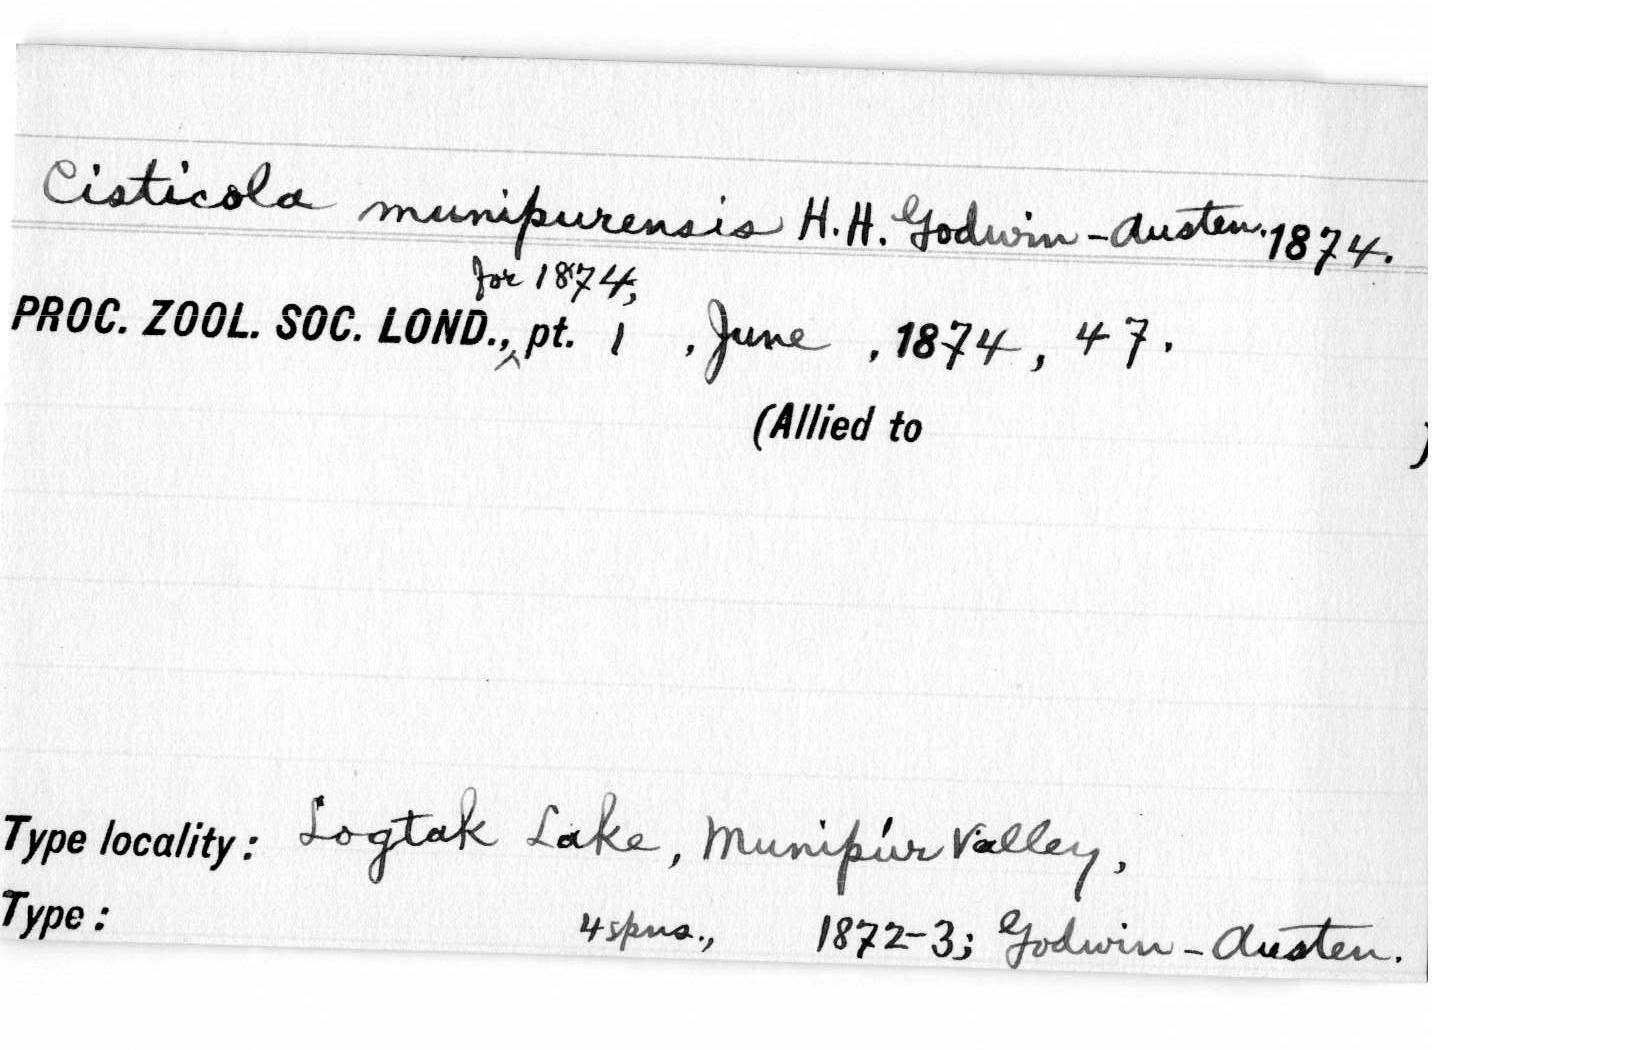 Cisticola munipurensis H.H. Godwin-Austen. 1874.
for 1874,
PROC. ZOOL. SOC. LOND., ^ pt. 1 , June , 1874, 47.
(Allied to )
Type locality: Logtak Lake, Munipúr Valley,
Type: 4 spns., 1872-3; Godwin-Austen.